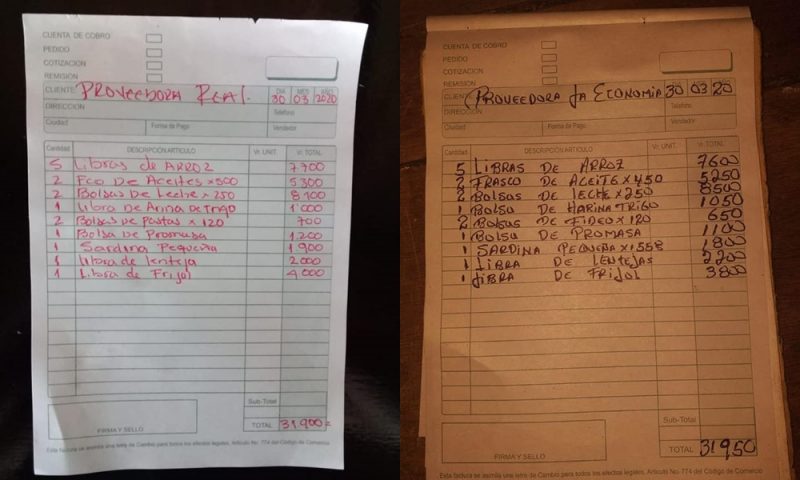 CUENTA DE COBRO
PEDIDO
COTIZACION
REMISIÓN
CLIENTE PROVEEDORA REAL. DIA MES AÑO
30 03 2020
DIRECCIÓN Teléfono
Ciudad Forma de Pago Vendedor
Cantidad DESCRIPCIÓN ARTICULO Vr. UNIT. Vr. TOTAL
5 Libras de ARROZ 7700
2 Fco De Aceites x 500 5300
2 Bolsas De Leche x 250 8100
1 Libra De Arina De Trigo 1'000
2 Bolsas de Pastas x 120 700
1 Bolsa De Promasa 1.200
1 Sardina Pequeña 1900
1 Libra de lenteja 2000
1 Libra de Frijol 4000
Sub-Total
FIRMA Y SELLO
TOTAL 31.900=
Esta factura se asimila una letra de Cambio para todos los efectos legales, Artículo No. 774 del Código de Comercio
CUENTA DE COBRO
PEDIDO
COTIZACIÓN
REMISIÓN
CLIENTE PROVEEDORA LA ECONOMIA 30 03 20
DIRECCIÓN Teléfono
Ciudad Forma de Pago Vendedor
Cantidad DESCRIPCIÓN ARTICULO Vr. UNIT. Vr. TOTAL
5 LIBRAS DE ARROZ 7600
2 FRASCO DE ACEITE x 450 5250
2 Bolsas DE LECHE x 250 8500
1 Bolsa DE HARINA TRIGO 1050
2 Bolsas DE FIDEO x 120 650
1 Bolsa DE PROMASA 1100
1 SARDINA PEQUEÑA x 155g 1800
1 LIBRA DE LENTEJAS 2200
1 LIBRA DE FRIJOL 3800
Sub-Total
FIRMA Y SELLO
TOTAL 31950
Esta factura se asimila una letra de Cambio para todos los efectos legales, Artículo No. 774 del Código de Comercio